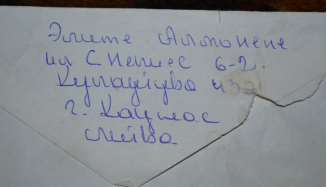 Элите Алтонене
ул С Нерис 6-2.
Кулаутува
г. Каунас
Литва